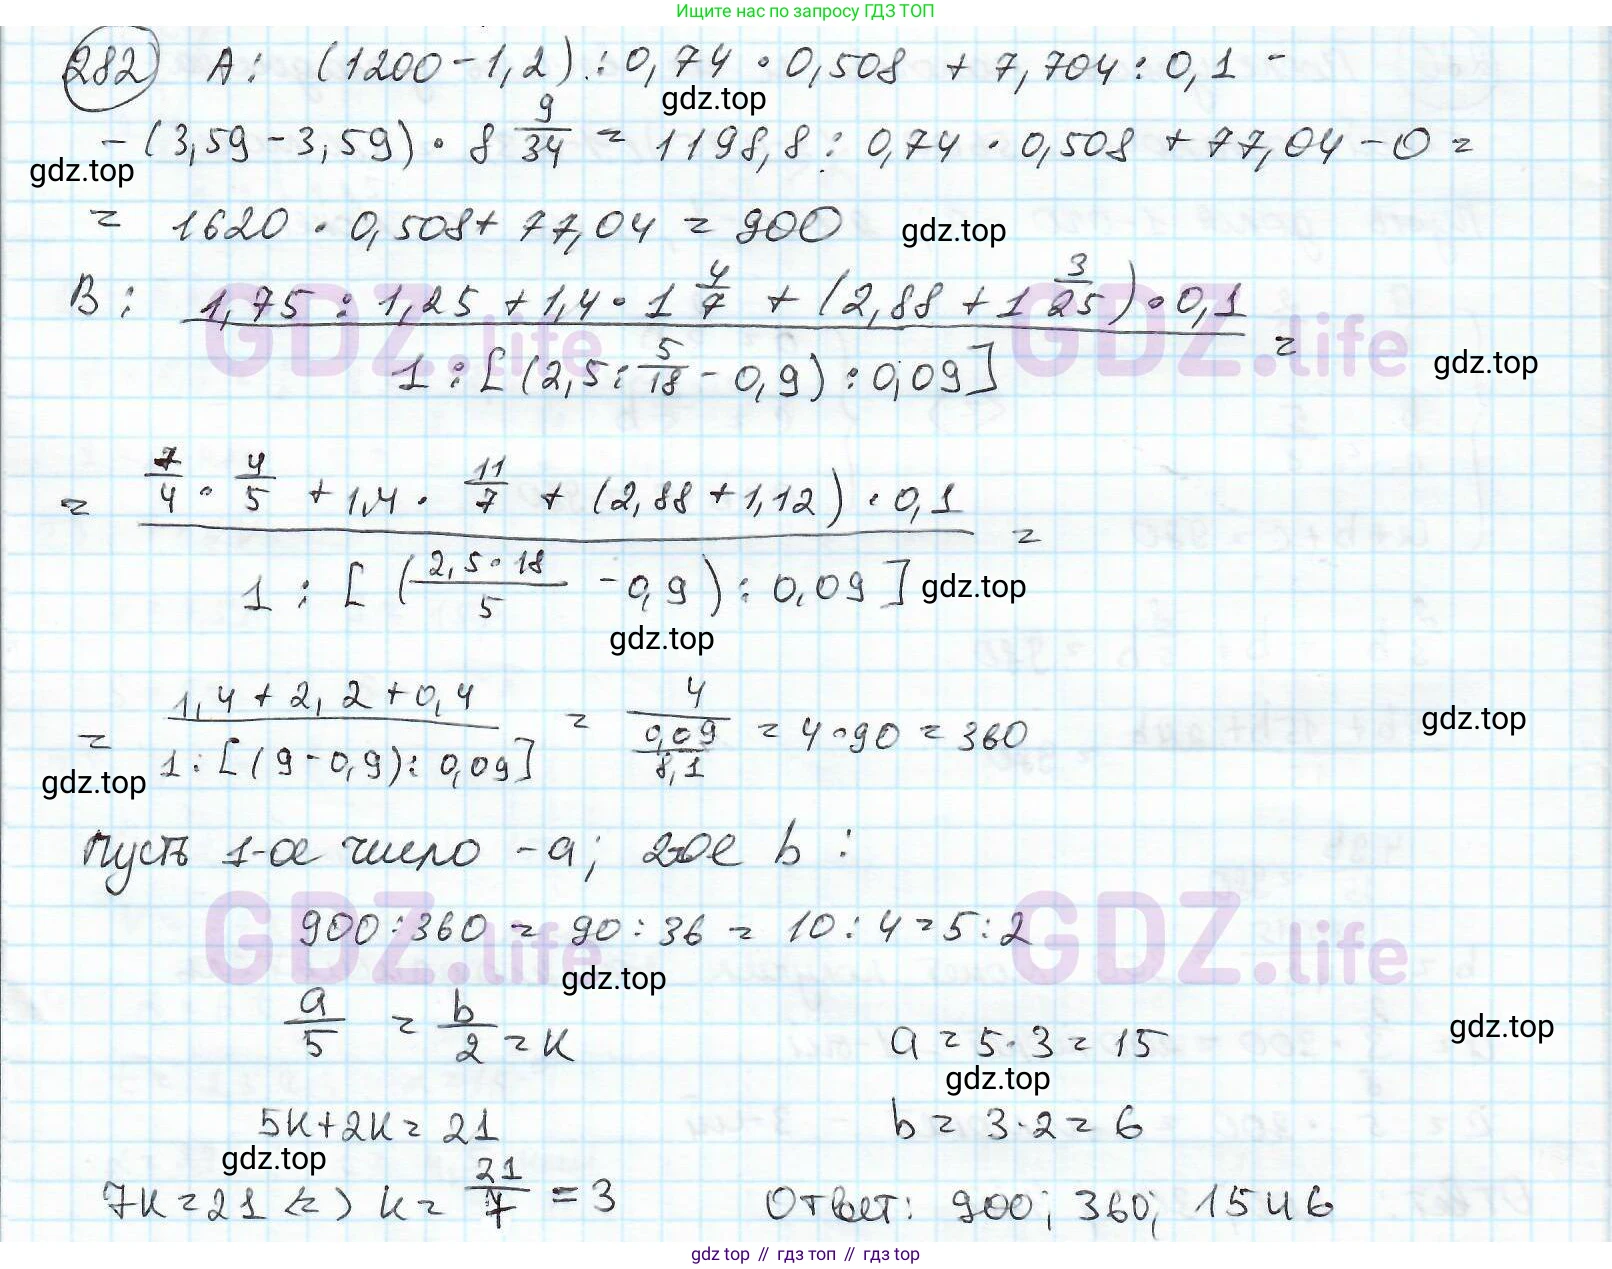 Ищите нас по запросу ГДЗ ТОП
282 A: (1200-1,2) : 0,74 · 0,508 + 7,704 : 0,1 -
gdz.top
- (3,59 - 3,59) · 8 9/34 = 1198,8 : 0,74 · 0,508 + 77,04 - 0 =
gdz.top
= 1620 · 0,508 + 77,04 = 900
gdz.top
B: 1,75 : 1,25 + 1,4 · 1 4/7 + (2,88 + 1 3/25) · 0,1
GDZ.life GDZ.life
1 : [(2,5 : 5/18 - 0,9) : 0,09] =
gdz.top
= 7/4 · 4/5 + 1,4 · 11/7 + (2,88 + 1,12) · 0,1
1 : [(2,5 · 18/5 - 0,9) : 0,09] =
gdz.top
gdz.top
= 1,4 + 2,2 + 0,4 / 1 : [(9 - 0,9) : 0,09] = 4 / 0,09/8,1 = 4 · 90 = 360
gdz.top
gdz.top
Пусть 1-ое число - a; 2-ое b :
GDZ.life GDZ.life
900 : 360 = 90 : 36 = 10 : 4 = 5 : 2
gdz.top
a/5 = b/2 = к
a = 5 · 3 = 15
gdz.top
gdz.top
5к + 2к = 21
b = 3 · 2 = 6
gdz.top
7к = 21 <=> к = 21/7 = 3
Ответ: 900; 360; 15 и 6
gdz top // гдз топ // гдз top